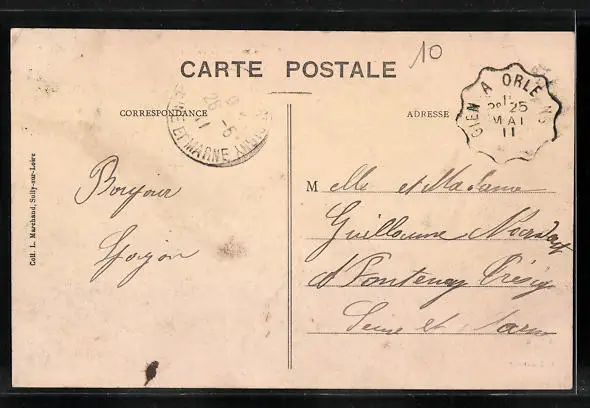 10
CARTE POSTALE
CORRESPONDANCE
ADRESSE
GIEN A ORLEANS
25
MAI
11
SEINE ET MARNE
26 -5
11
Coll. L. Marchand, Sully-sur-Loire
Bonjour
M elle et Madame
Guillaume
d'Fontenay Trésigy
Seine et Marne